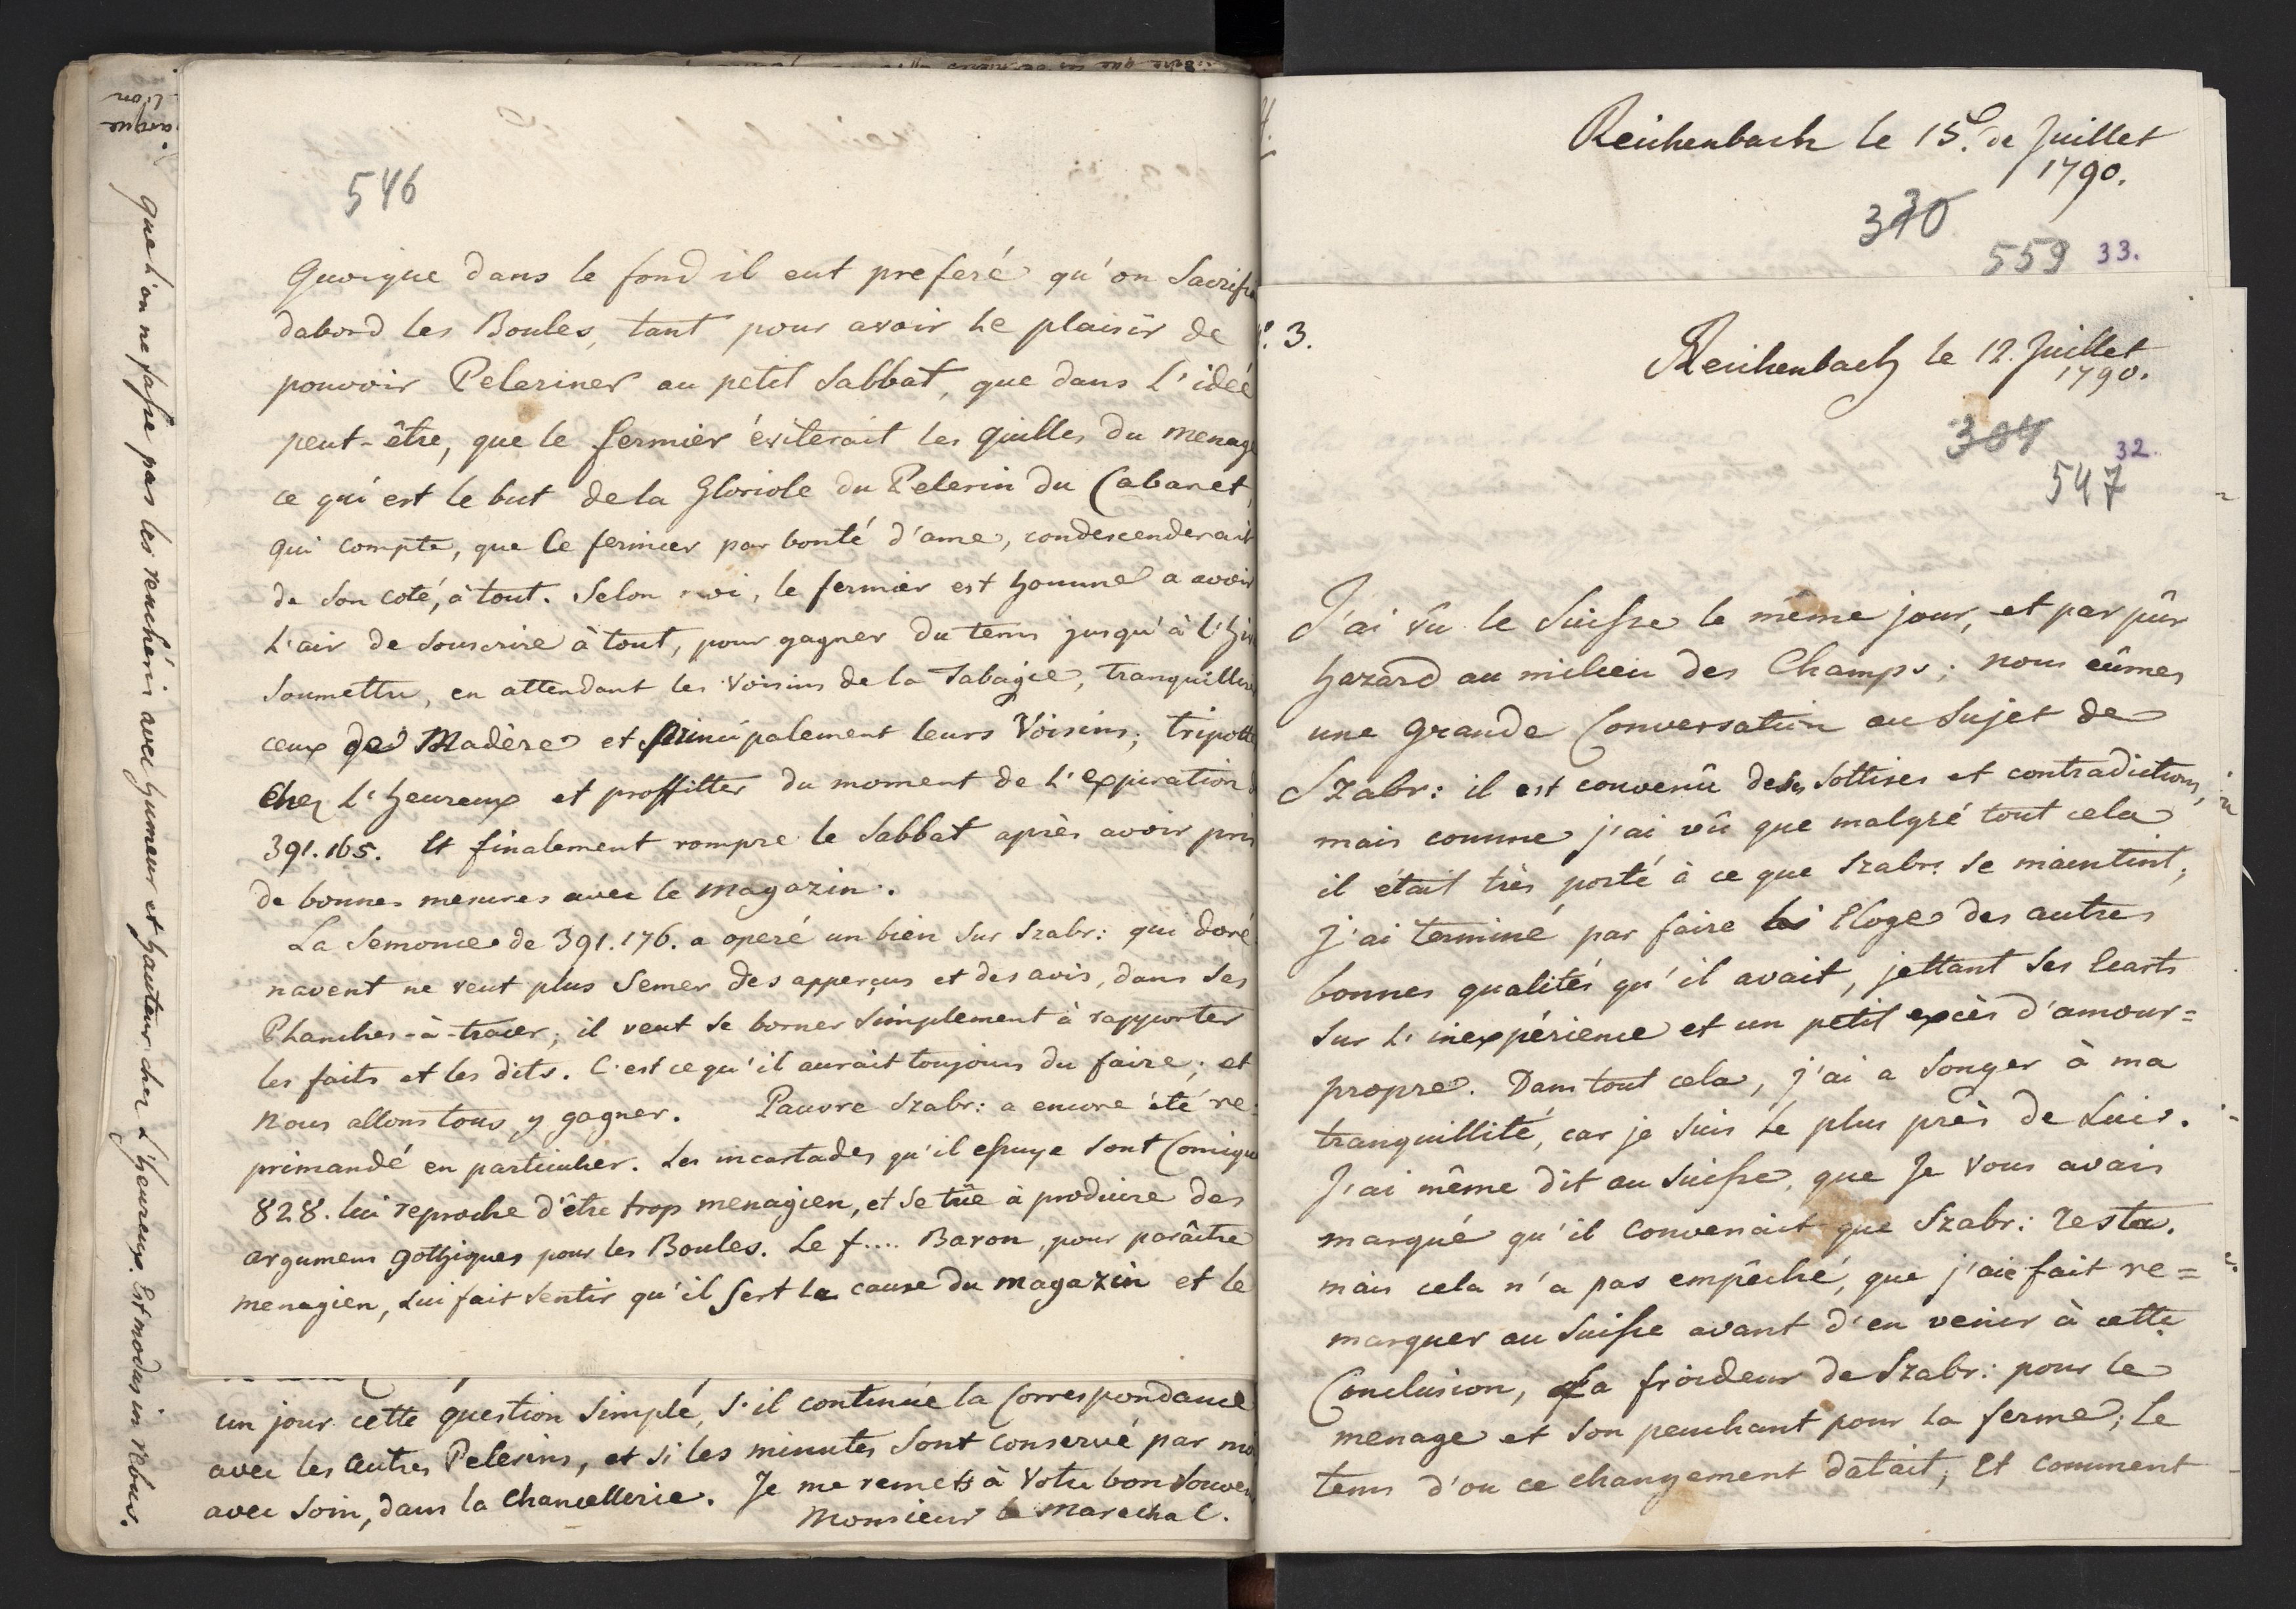 546
Quoique dans le fond il eut preferé qu'on Sacrifi
dabord les Boules, tant pour avoir le plaisir de
pouvoir Peleriner au petit Sabbat, que dans L'ideé
peut-être, que le fermier éviterait les quilles du menag
ce qui est le but de la Gloriole du Pelerin du Cabaret,
qui compte, que le fermier par bonté d'ame, condescenderait
de Son coté, à tout. Selon moi, le fermier est homme a avoir
L'air de Souscrire à tout, pour gagner du tems jusqu'à l'hi
Soumettre, en attendant les Voisins de la Tabagie, tranquillise
ceux de Madère et principalement leurs Voisins; tripott
chez L'heureux et proffitter du moment de L'expiration d
391.165. Et finalement rompre le Sabbat après avoir pris
de bonnes mesures avec le magazin.
La Semonce de 391.176. a operé un bien sur Szabr: qui doré
navent ne veut plus Semer des apperçus et des avis, dans Ses
Planches-à-tracer; il veut se borner Simplement à rapporter
les faits et les dits. C'est ce qu'il aurait toujours du faire; et
nous allons tous y gagner. Pauvre Szabr: a encore été re=
primandé en particulier. Les incartades qu'il essuye sont Comiqu
828. lui reproche d'être trop menagien, et se tüe à produire des
argumens gothiques pour les Boules. Le f.... Baron, pour parâitre
menagien, Lui fait Sentir qu'il Sert la cause du magazin et le
un jour cette question Simple, S'il continüe la Correspondance
avec les autres Pelerins, et si les minutes Sont conservé par mo
avec Soin, dans la Chancellerie. Je me remets à Votre bon Souve
Monsieur le Marechal.
que L'on ne fasse pas les renchéris avec humeur et hauteur chez L'heureux. Est modus in rebus.
Reichenbach le 15. de Juillet
1790.
370
559 33.
3.
Reichenbach le 12. Juillet
1790.
304
32.
547
J'ai vû le Suisse le même jour, et par pûr
hazard au milieu des Champs; nous eûmes
une grande Conversation au Sujet de
Szabr: il est convenû de ses Sottises et contradictions,
mais comme j'ai vû que malgré tout cela
il était très porté à ce que Szabr: se maintint,
j'ai terminé par faire les Eloges des autres
bonnes qualités qu'il avait, jettant Ses Ecarts
Sur L'inexpérience et un petit excès d'amour=
propre. Dans tout cela, j'ai a Songer à ma
tranquillité, car je Suis Le plus près de Lui.
J'ai même dit au Suisse, que Je Vous avais
marqué qu'il convenait que Szabr: resta.
mais cela n'a pas empêché, que j'aie fait re=
marquer au Suisse avant d'en venir à cette
Conclusion, La froideur de Szabr: pour le
menage et Son penchant pour la ferme; Le
tems d'ou ce changement datait; Et comment